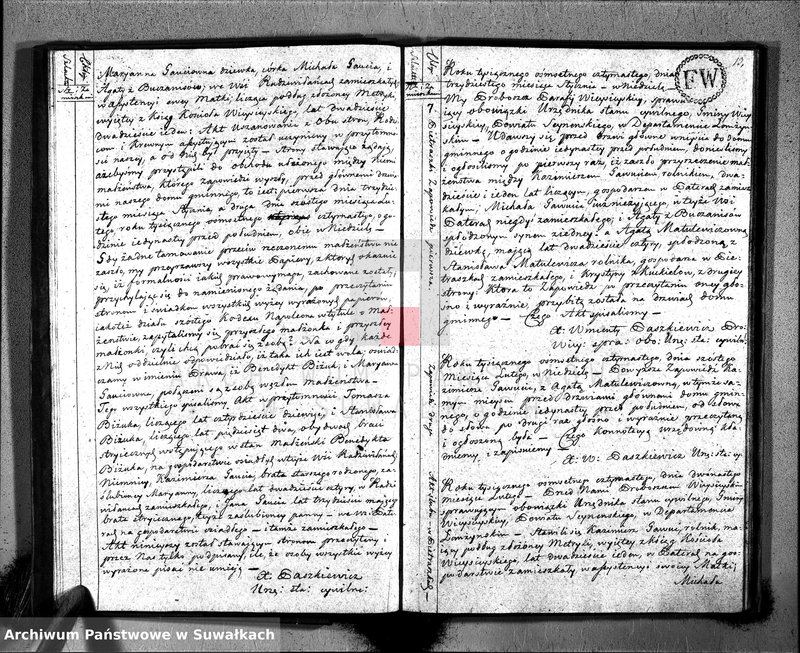 Maryanna Gauciowna dziewka, córka Michała Gaucia, i
Agaty z Buzanisow, we Wsi Radziwilańcach zamieszkałych
w assystencyi swey Matki, licząca podług złożoney Metryki,
wyjętey z Ksiąg Kościoła Wieysieyskiego, lat dwadzieście
dwadzieście ieden: Akt Uszanowania z obu stron Rodzi
com i krewnym został uczyniony w przytomno
ści naszey, a od nich był przyjęty. Strony stawające żądają,
ażebyśmy przystąpili do obchodu ułożonego między niemi
małżeństwa, którego zapowiedzi wyszły, przed głównemi drzwi
mi naszego domu gminnego, to iest: pierwsza dnia trzydzie
stego miesiąca Stycznia, a druga dnia szóstego miesiąca Lu
tego roku tysiącznego ośmsetnego cztyrnastego, o go
dzinie iedynastey przed południem, obie w Niedzielę
Gdy żadne tamowanie przeciw rzeczonemu małżeństwu nie
zaszło, my przeyrzawszy wszystkie Papiery, z których okazuie
się, iż formalności iakich prawo wymaga, zachowane zostały,
przychylając się do namienionego żądania, po przeczytaniu
stronom i świadkom wszystkich wyżey wyrażonych papierów,
iakoteż działu szóstego Kodexu Napoleona w tytule o Mał-
żeństwie, zapytaliśmy się przyszłego małżonka i przyszłey
małżonki, czyli chcą pobrać się z sobą? Na co gdy każde
z nich oddzielnie odpowiedziało, iż taka ich iest wola; oświad
czamy w imieniu Prawa, iż Benedykt Biżuk, i Maryanna
Gauciowna, połączeni są z sobą węzłem małżeństwa
Tego wszystkiego spisaliśmy Akt w przytomności Tomasza
Biżuka, liczącego lat cztyrdzieście dziewięć, i Stanisława
Biżuka, liczącego lat pięćdziesiąt dwa, obydwóch braci
stryiecznych wstępującego w stan Małżeński Benedykta
Biżuka, na gospodarstwie osiadłych w teyże Wsi
Kazimierza Gaucia, brata starszego rodzonego, za-
ślubioney Maryanny, liczącego lat dwadzieście cztyry, w Radzi
wilańcach zamieszkałego, i Jana Gaucia lat trzydzieści mającego
brata stryiecznego, teyże zaślubioney panny we wsi Bate-
ralach na gospodarstwie osiadłego i tamże zamieszkałego
Akt ninieyszy został stawającym stronom przeczytany i
przez Nas tylko podpisany, ile, że osoby wszystkie wyżey
wyrażone pisać nie umieją
X. Daszkiewicz
Urzę: sta: cywilne:
FW
Roku tysiącznego ośmsetnego cztyrnastego, dnia
trzydziestego miesiąca Stycznia w Niedzielę
My Proboszcz Parafii Wieysieyskiey, sprawu
iący obowiązki Urzędnika stanu cywilnego, Gminy Wiey
sieyskiey, Powiatu Seyneńskiego, w Departamencie Łomżyń-
skim Udawszy się przed drzwi główne wniyścia do domu
gminnego o godzinie iedynastey przed południem, donieśliśmy
i ogłosiliśmy po pierwszy raz, iż zaszło przyrzeczenie mał-
żeństwa między Kazimierzem Gawuciem, rolnikiem, dwa-
dzieście i ieden lat liczącym, gospodarzem w Bateral zamiesz
kałym, Michała Gawucia już nieżyjącego, w teyże Wsi
Bateral niegdyś zamieszkałego, i Agaty z Buzanisów
spłodzonym synem z iedney, a Agatą Matulewiczowną
dziewką, mającą lat dwadzieście cztyry, spłodzoną z
Stanisława Matulewicza rolnika, gospodarza w Bie-
traszkach zamieszkałego, i Krystyny z Kukielow, z drugiey
strony: Która to Zapowiedź po przeczytaniu oney gło-
śno i wyraźnie, przybitą została na drzwiach domu
gminnego. Czego Akt spisaliśmy
X. Wincenty Daszkiewicz Pro:
Wiey: spra: obo: Urz: sta: cywil:
Roku tysiącznego ośmsetnego cztyrnastego, dnia szóstego
Miesiąca Lutego, w Niedzielę Powyższe Zapowiedzi Ka-
zimierza Gawucia, z Agatą Matulewiczowną, w tymże sa-
mym mieyscu przed drzwiami głównemi domu gmin-
nego, o godzinie iedynastey przed południem, od słowa
do słowa po drugi raz głośno i wyraźnie przeczytaną
i ogłoszoną była Czego konnotacyą urzędowną kła-
dziemy, i zapisuiemy
X. W: Daszkiewicz Urz: sta: cy:
Roku tysiącznego ośmsetnego cztyrnastego, dnia dwónastego
miesiąca Lutego Przed Nami Proboszczem Wieysieyskim
sprawującym obowiązki Urzędnika stanu cywilnego, Gminy
Wieysieyskiey, Powiatu Seyneńskiego w Departamencie
Łomżyńskim Stawili się Kazimierz Gawuc, rolnik, ma-
jący podług złożoney Metryki, wyjętey z Ksiąg Kościoła
Wieysieyskiego, lat dwadzieście ieden, w Bateral na gos-
podarstwie zamieszkały, w assystencyi swoiey Matki
Michała
7. Bietraszki. Zapowiedź pierwsza.
Zapowiedź druga
Archiwum Państwowe w Suwałkach